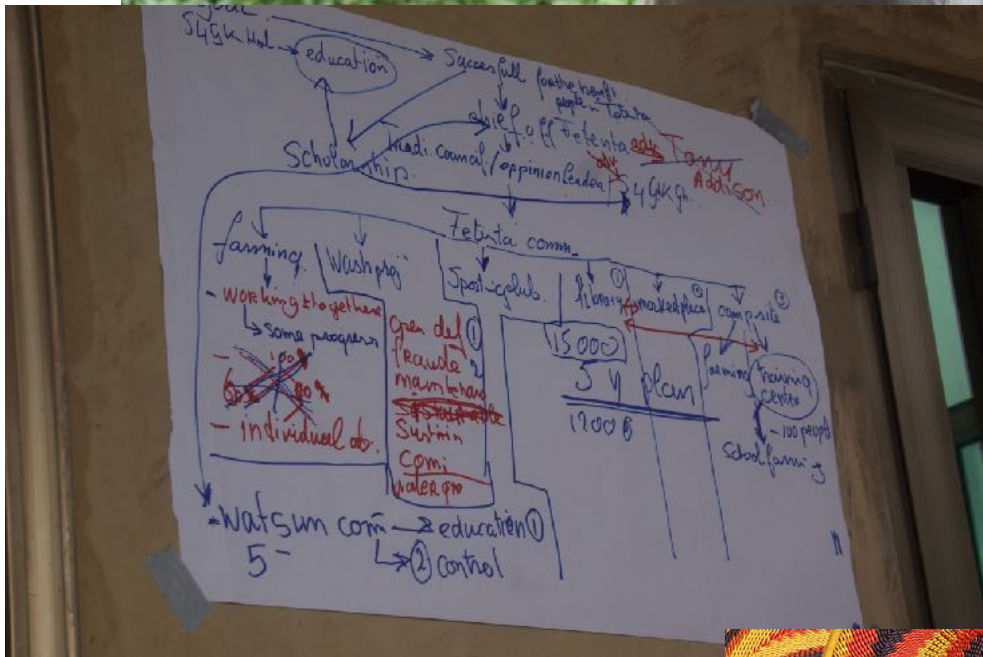 S4GK Hol → education
Succesfull for the benefit
people in Tetenta
chief off Tetenta adv Tony
Addison.
Tradi. Council / oppinion leader
adv
S4GKGh.
Scholarship.
Tetenta comm.
farming.
Wash proj
Sport-club.
library ①
marked place ②
campsite ③
- working together
↳ some progress
- 100%
60% 40%
- individual do.
open def ①
2
maintenance
Sustain
Comi
15000
5 y plan
farming
training center
- 100 people
School farming
- Watsun com → education ①
5 -
↳ ② control